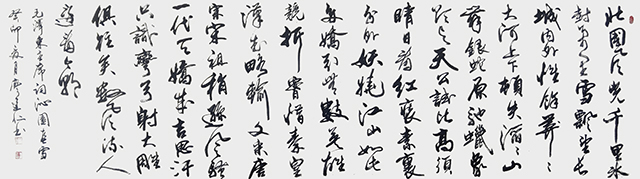 北國风光千里冰
封万里雪飘望长
城内外惟餘莽々
大河上下顿失滔々山
舞銀蛇原驰蠟象
欲与天公試比高須
晴日看红裝素裹
分外妖娆江山如此
多嬌引無數英雄
競折腰惜秦皇
漢武略輸文采唐
宗宋祖稍遜风骚
一代天驕成吉思汗
只識彎弓射大雕
俱往矣數风流人
还看今朝
毛澤东主席词沁園春雪
癸卯夏月